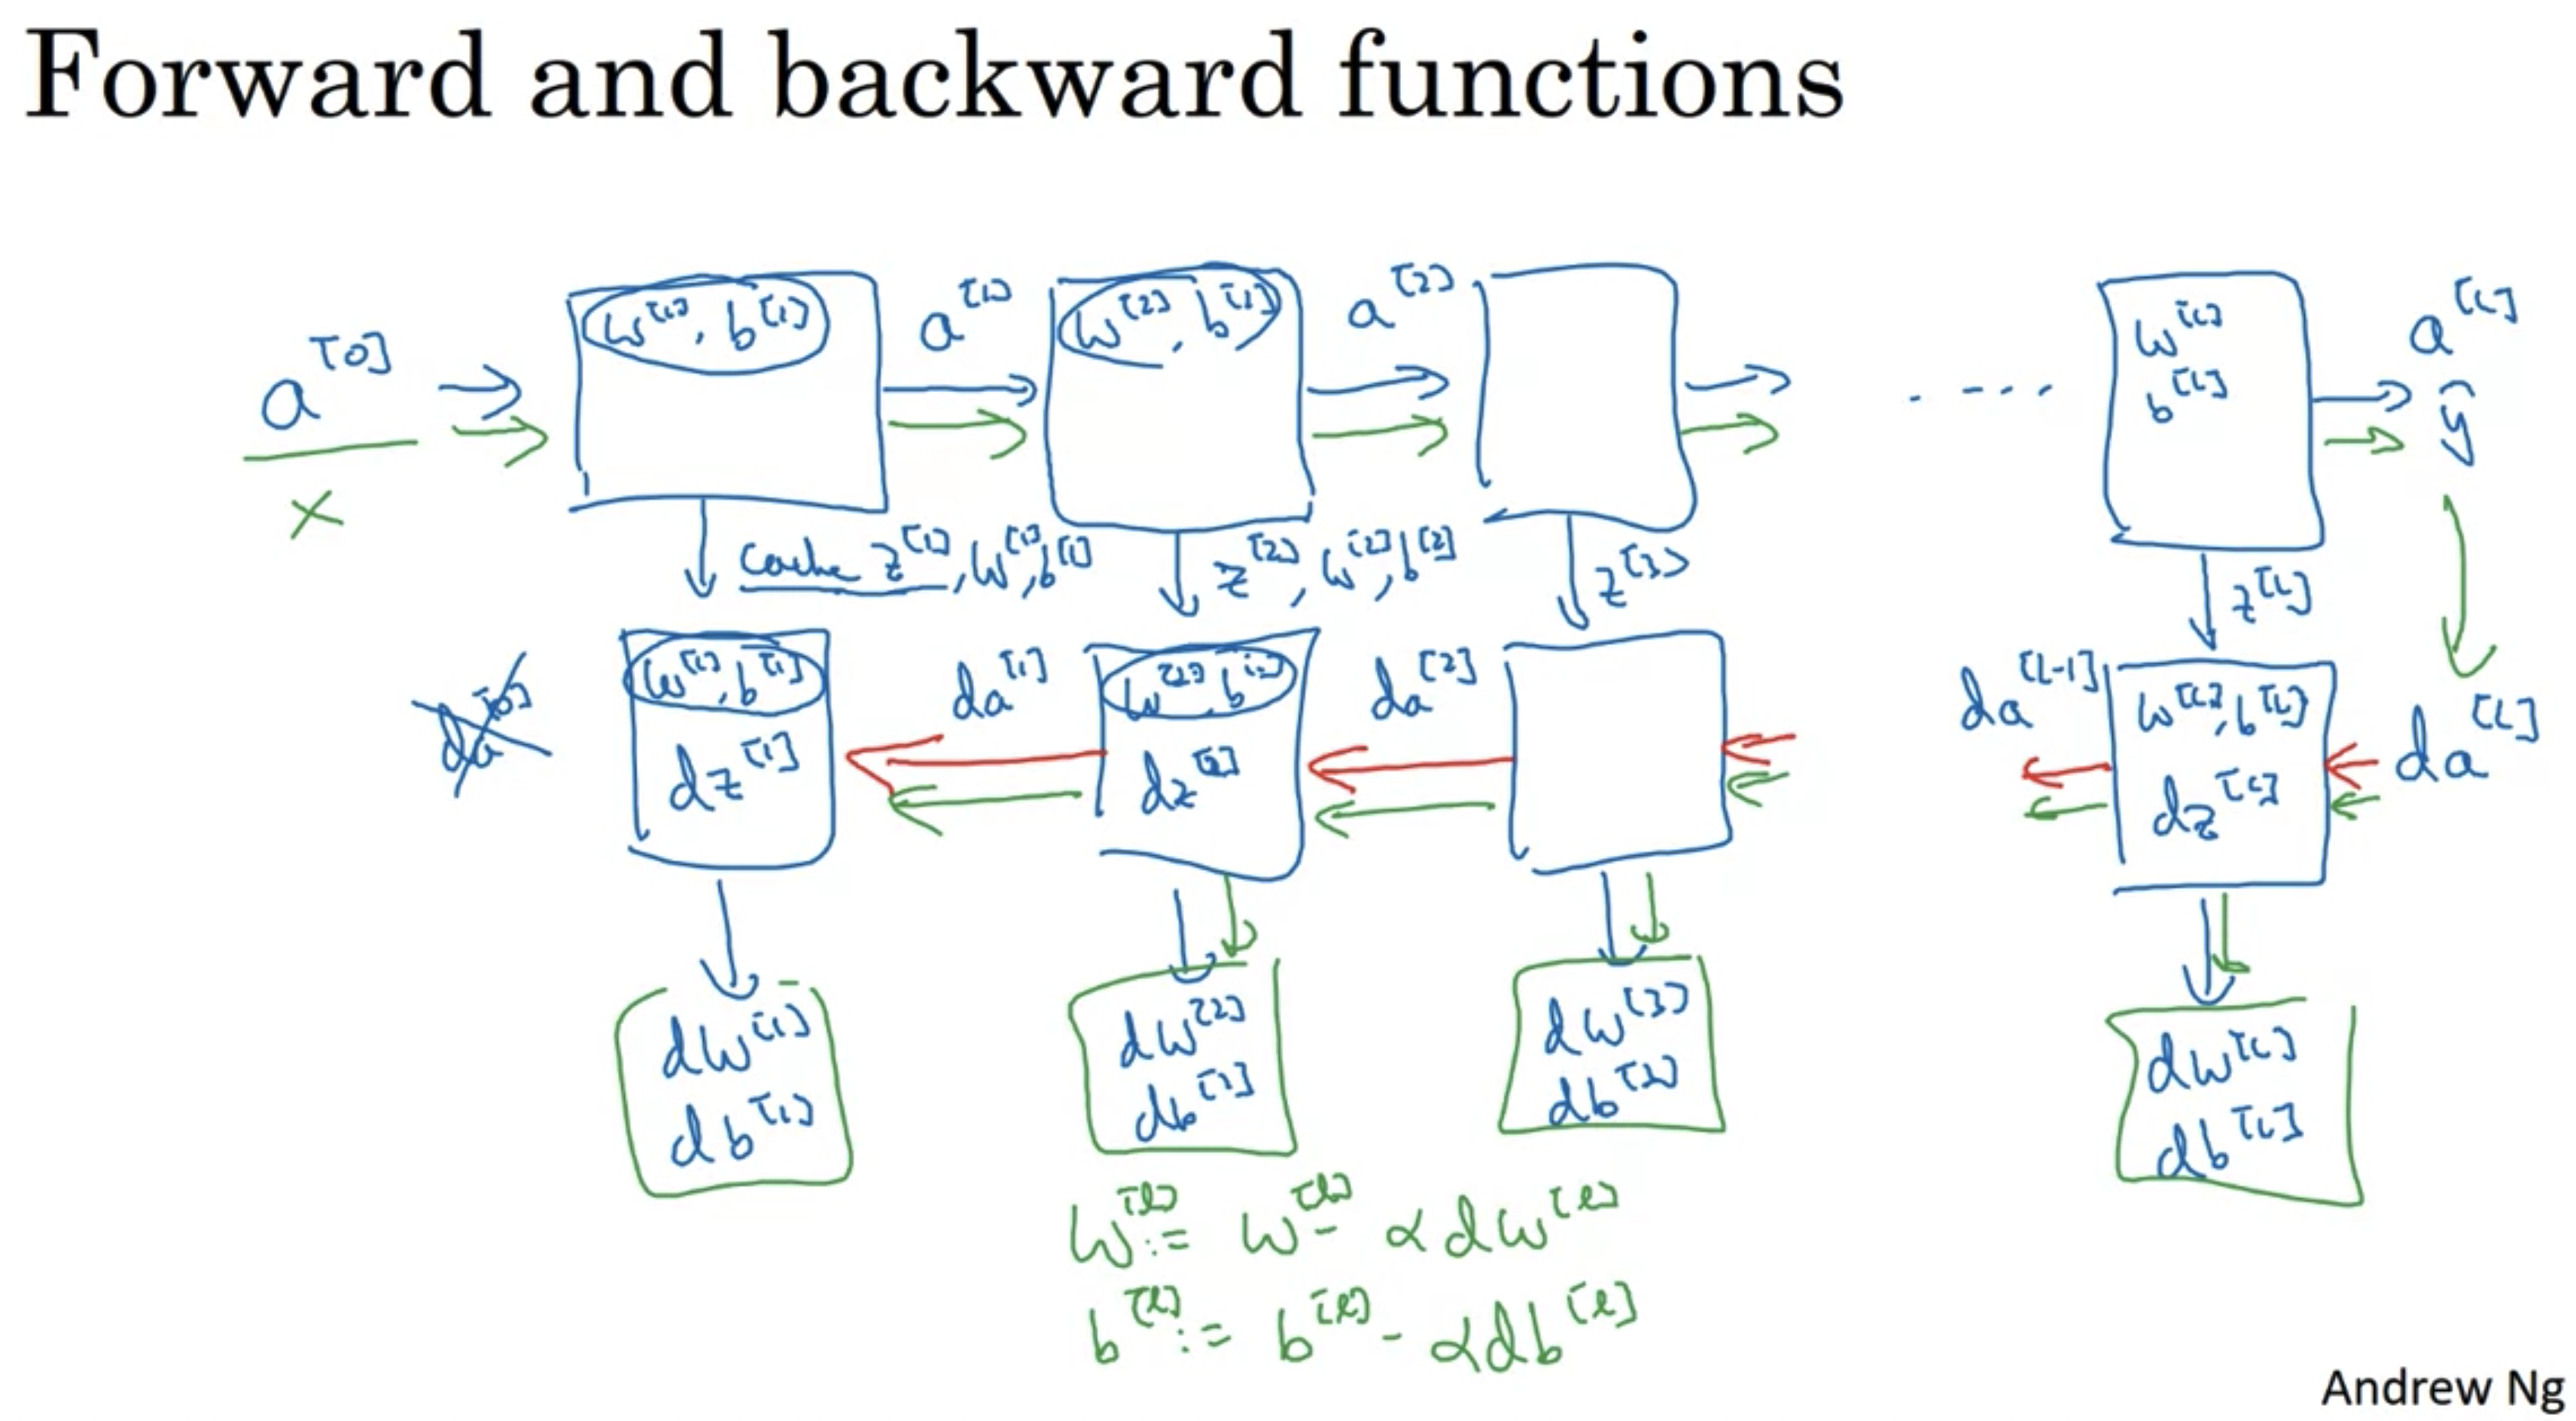 Forward and backward functions
a^[0] w^[1], b^[1] a^[1] w^[2], b^[2] a^[2] .... w^[L] a^[L]
x b^[L] ŷ
cache z^[1], w^[1], b^[1] z^[2], w^[2], b^[2] z^[3] z^[L]
da^[0] w^[1], b^[1] da^[1] w^[2], b^[2] da^[2] da^[L-1] w^[L], b^[L] da^[L]
dz^[1] dz^[2] dz^[L]
dw^[1] dw^[2] dw^[3] dw^[L]
db^[1] db^[2] db^[3] db^[L]
w^[l] := w^[l] - α dw^[l]
b^[l] := b^[l] - α db^[l]
Andrew Ng